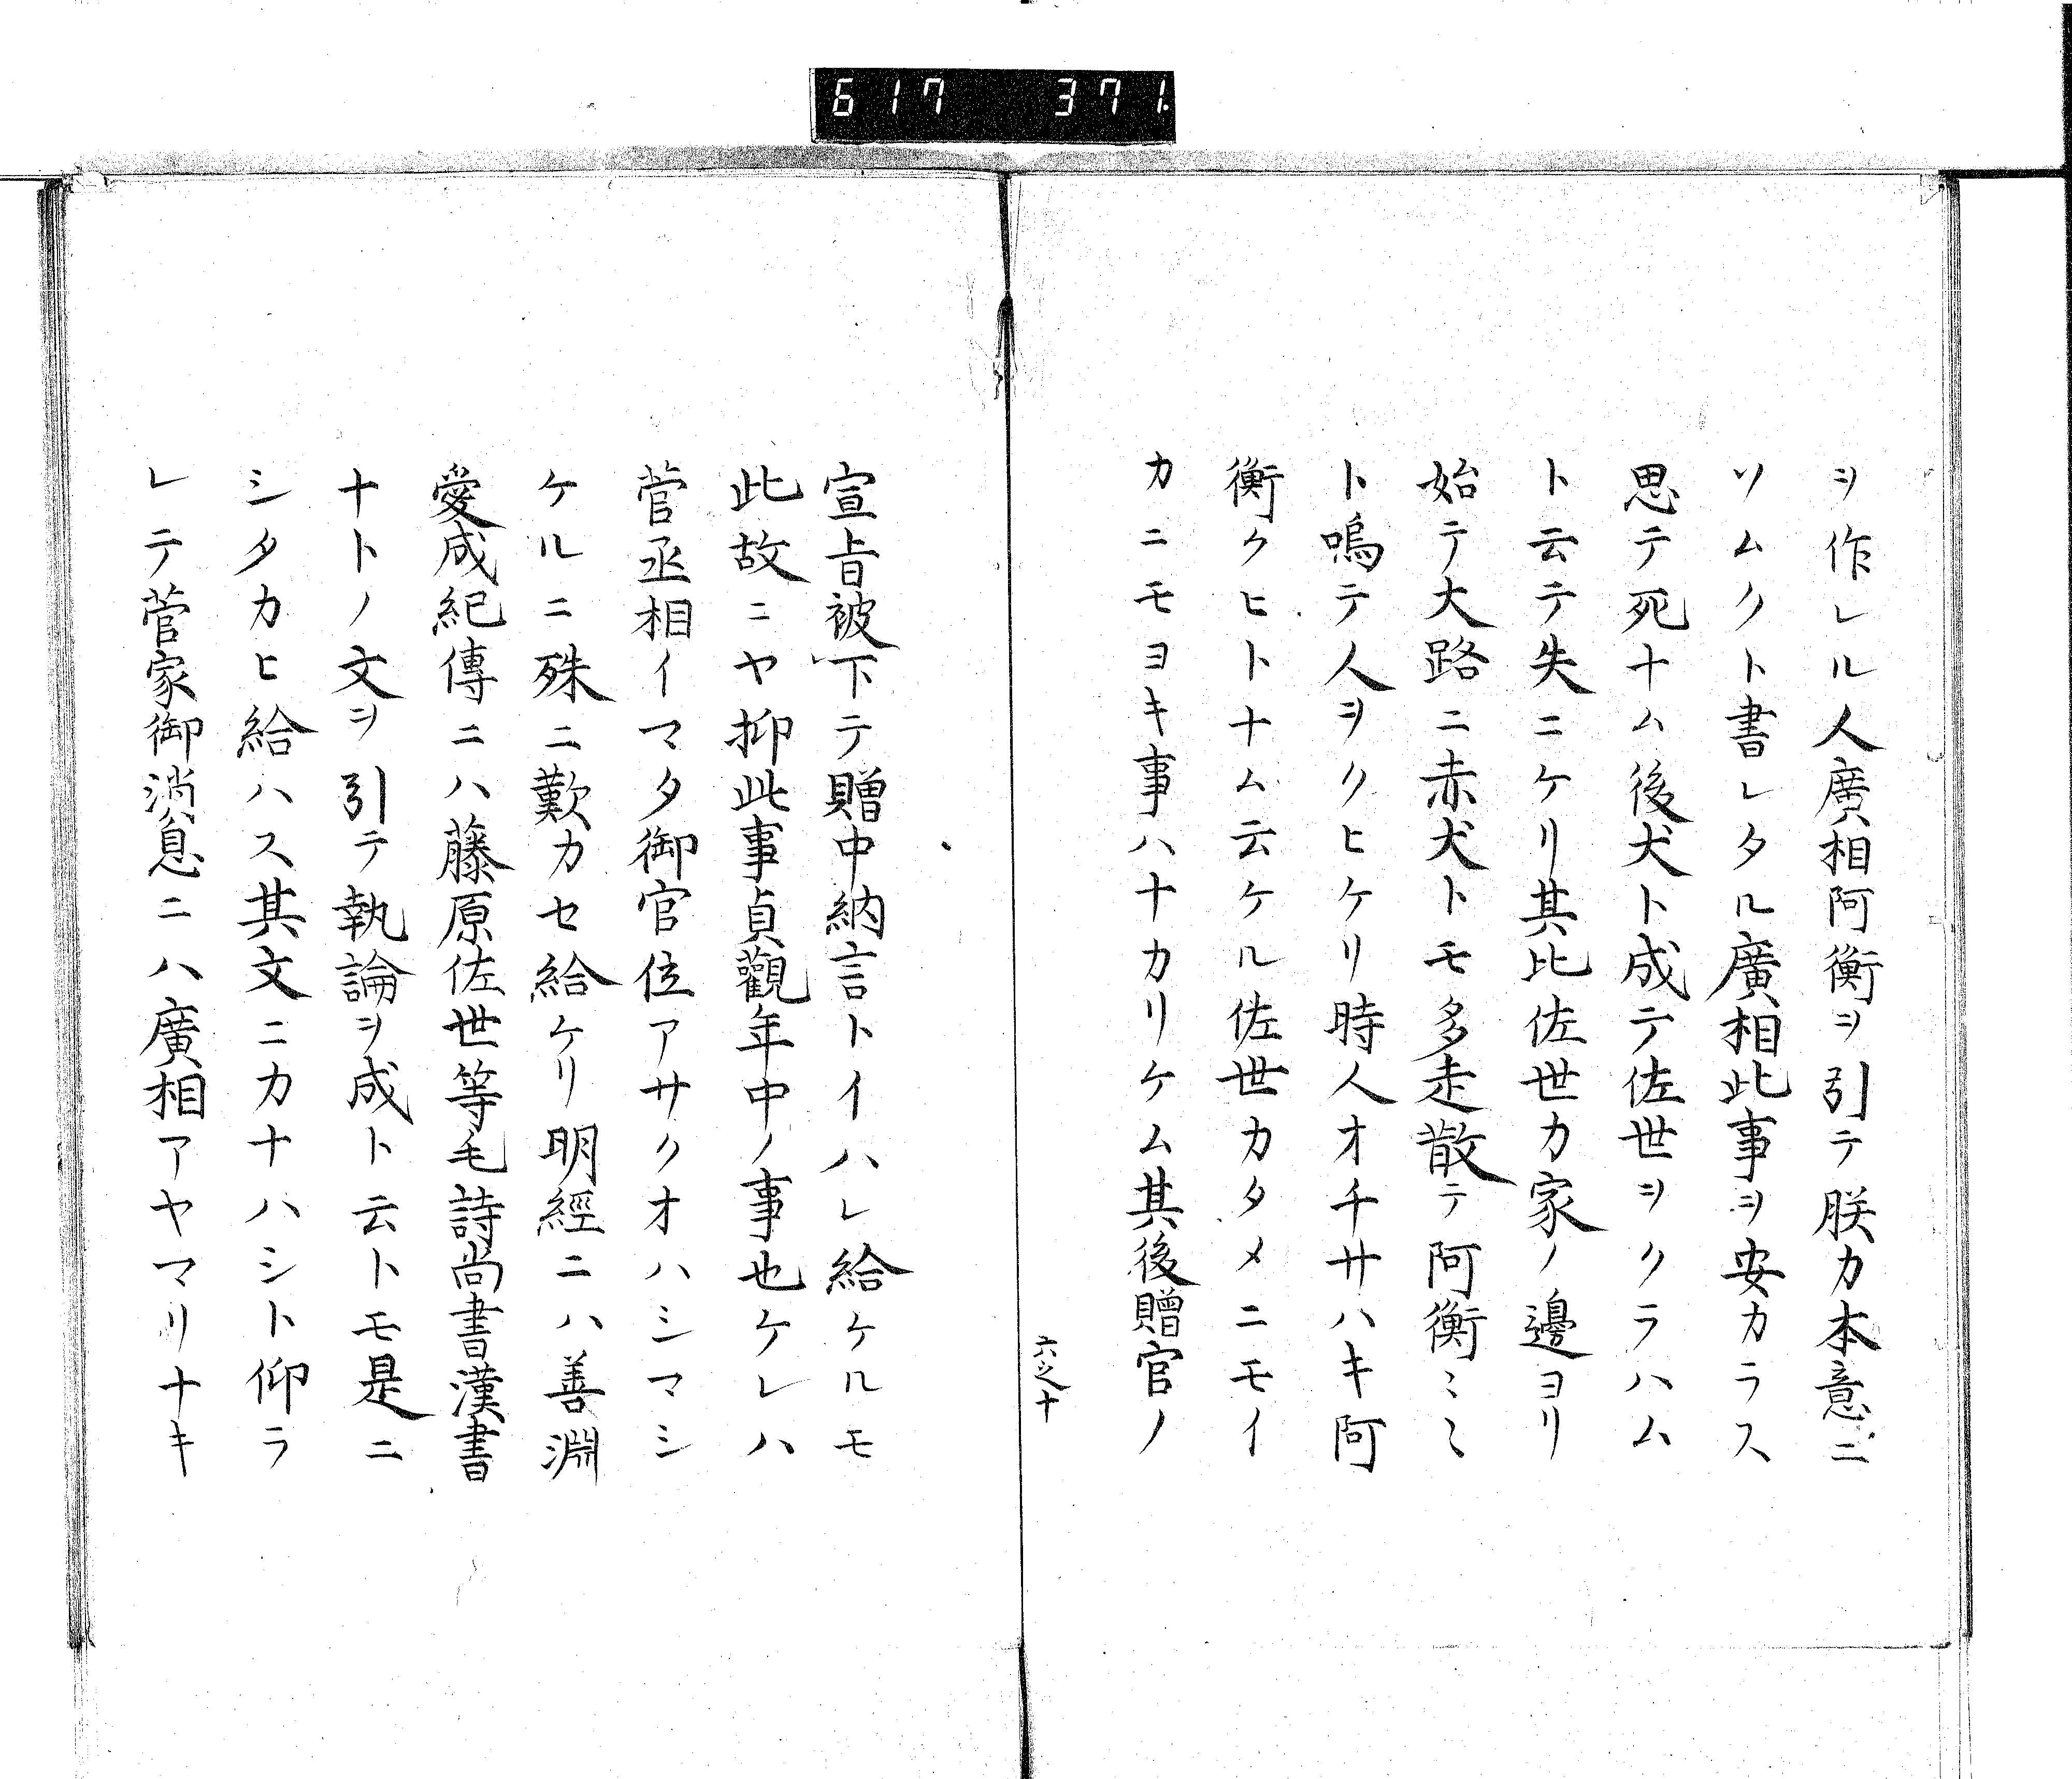 617 371.
ヲ作レル人廣相阿衡ヲ引テ朕カ本意ニ
ソムクト書レタル廣相此事ヲ安カラス
思テ死ナム後犬ト成テ佐世ヲクラハム
ト云テ失ニケリ其比佐世カ家ノ邊ヨリ
始テ大路ニ赤犬トモ多走散テ阿衡ミミ
ト鳴テ人ヲクヒケリ時人オチサハキ阿
衡クヒトナム云ケル佐世カタメニモイ
カニモヨキ事ハナカリケム其後贈官ノ
六之十
宣旨被下テ贈中納言トイハレ給ケルモ
此故ニヤ抑此事貞觀年中ノ事也ケレハ
菅丞相イマタ御官位アサクオハシマシ
ケルニ殊ニ歎カセ給ケリ明經ニハ善淵
愛成紀傳ニハ藤原佐世等毛詩尚書漢書
ナトノ文ヲ引テ執論ヲ成ト云トモ是ニ
シタカヒ給ハス其文ニカナハシト仰ラ
レテ菅家御消息ニハ廣相アヤマリナキ